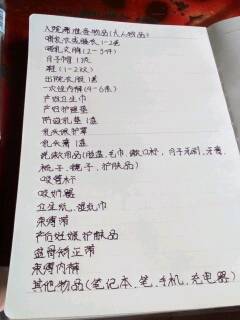 入院需准备物品(大人物品)
哺长衣或睡衣1-2套
哺乳文胸(2-3件)
月子帽1顶
鞋(1-2双)
出院衣服1套
一次性内裤(4-6条)
产妇卫生巾
产妇护理垫
防溢乳垫1盒
乳头保护罩
乳头膏1盒
洗漱用品(脸盆、毛巾、漱口杯、月子牙刷、牙膏、
梳子、镜子、护肤品)
吸管杯
吸奶器
卫生纸、湿纸巾
束缚带
产后妊娠护肤品
盆骨矫正带
束缚内裤
其他物品(笔记本、笔、手机、充电器)